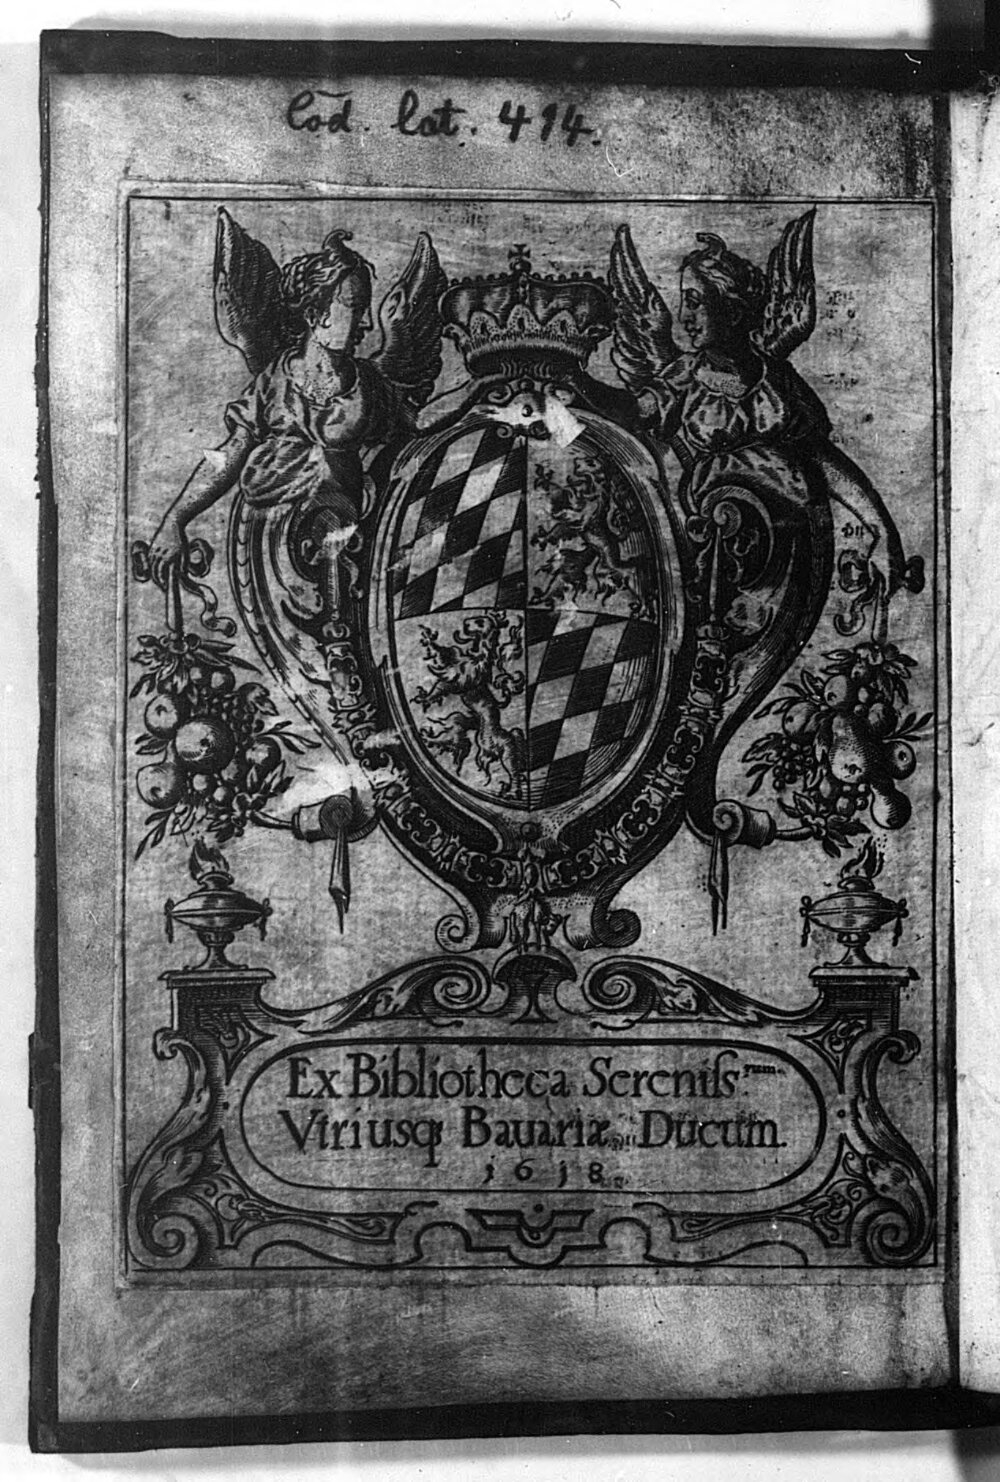 Cod. lat. 494.
Ex Bibliotheca Sereniſs:rum.
Vtriusq Bavariæ Ducum.
1618.